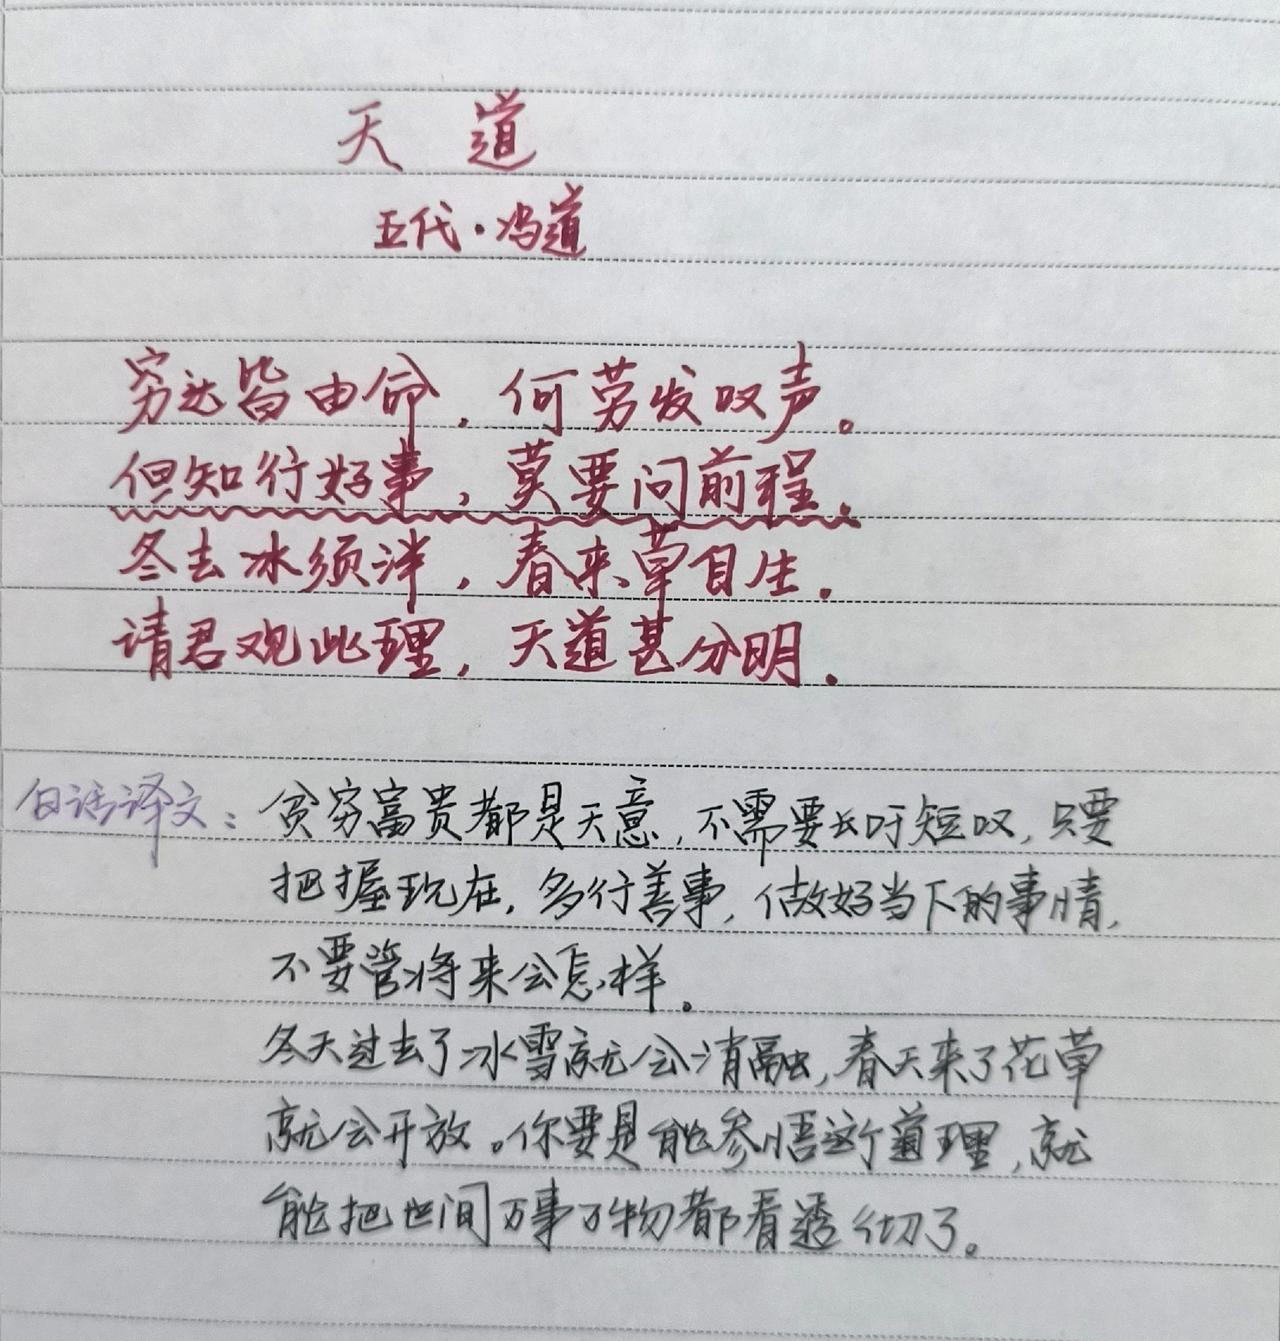 天道
五代·冯道
穷达皆由命，何劳发叹声。
但知行好事，莫要问前程。
冬去冰须泮，春来草自生.
请君观此理，天道甚分明.
白话译文：贫穷富贵都是天意，不需要长吁短叹，只要
把握现在，多行善事，做好当下的事情，
不要管将来会怎样.
冬天过去了冰雪就会消融，春天来了花草
就会开放。你要是能参悟这个道理，就
能把世间万事万物都看透彻了。